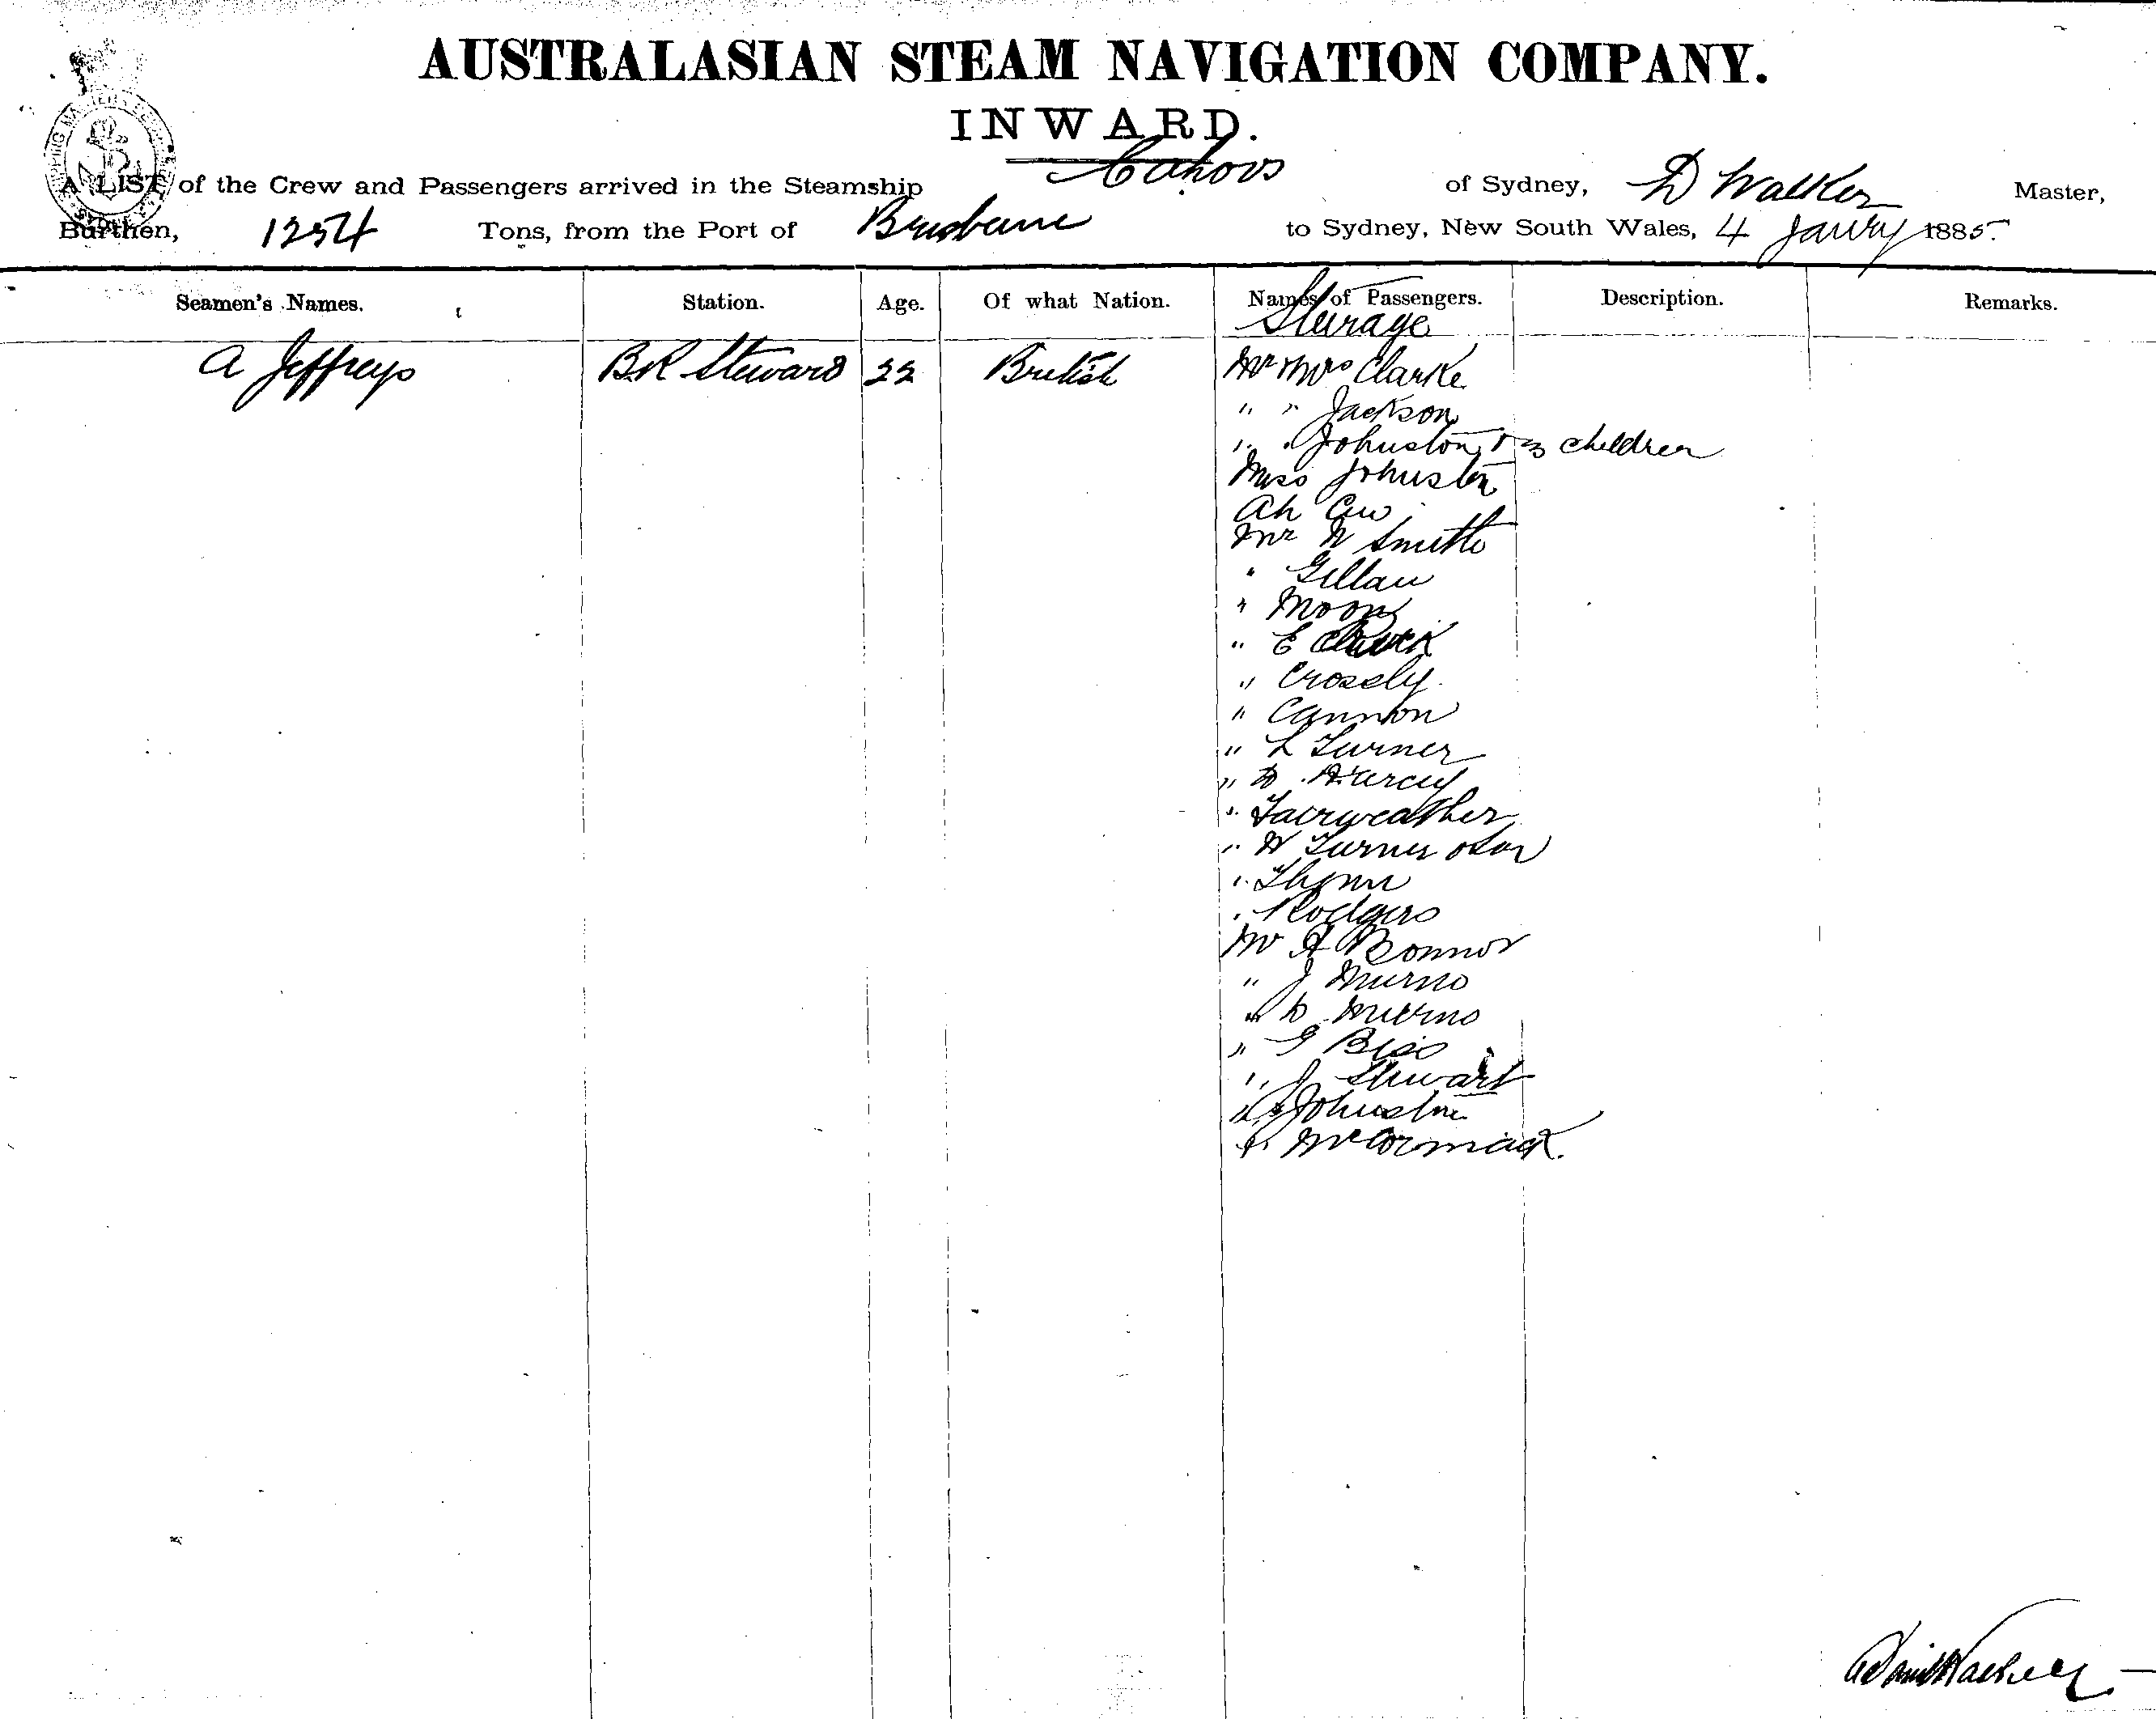 AUSTRALASIAN STEAM NAVIGATION COMPANY.
INWARD.
A LIST of the Crew and Passengers arrived in the Steamship Cahors of Sydney, D Walker Master,
Burthen, 1254 Tons, from the Port of Brisbane to Sydney, New South Wales, 4 Janry 1885.
Seamen's Names. Station. Age. Of what Nation. Names of Passengers. Description. Remarks.
Steerage
A Jeffreys B.R Steward 22 British Mr Mrs Clarke
" " Jackson
" " Johnston & 3 children
Miss Johnston
Ah
Mr W Smith
" Gillan
" Moon
" E
" Crossly
" Cannon
" L Turner
" D
" Fairweather
" W Turner & Son
" Flynn
" Rodgers
Mr A Bonnor
" J Murno
" D Murno
" G Biss
" J Stewart
" Johnston
" McCormack.